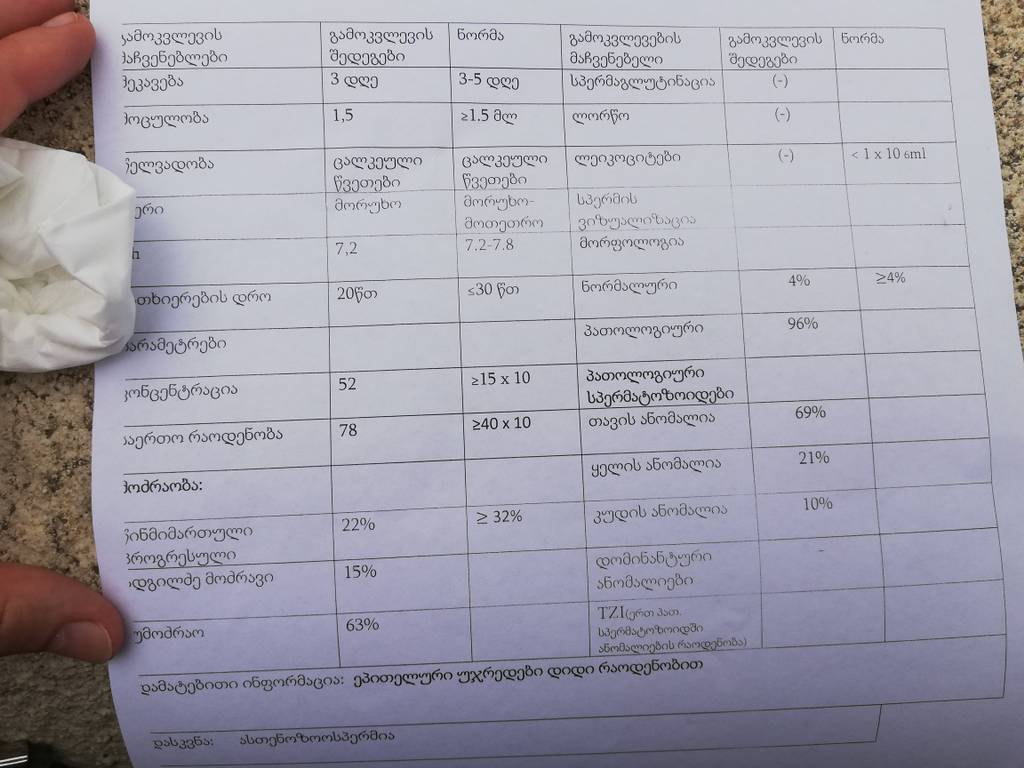 გამოკვლევის მაჩვენებლები გამოკვლევის შედეგები ნორმა გამოკვლევების მაჩვენებელი გამოკვლევის შედეგები ნორმა
შეკავება 3 დღე 3-5 დღე სპერმაგლუტინაცია (-)
მოცულობა 1,5 ≥1.5 მლ ლორწო (-)
წელვადობა ცალკეული წვეთები ცალკეული წვეთები ლეიკოციტები (-) < 1 x 10 6ml
ფერი მორუხო მორუხო-მოთეთრო სპერმის ვიზუალიზაცია
7,2 7.2-7.8 მორფოლოგია
გათხიერების დრო 20წთ ≤30 წთ ნორმალური 4% ≥4%
პარამეტრები პათოლოგიური 96%
კონცენტრაცია 52 ≥15 x 10 პათოლოგიური სპერმატოზოიდები
საერთო რაოდენობა 78 ≥40 x 10 თავის ანომალია 69%
მოძრაობა: ყელის ანომალია 21%
წინმიმართული პროგრესული 22% ≥ 32% კუდის ანომალია 10%
ადგილზე მოძრავი 15% დომინანტური ანომალიები
უმოძრაო 63% TZI(ერთ პათ. სპერმატოზოიდში ანომალიების რაოდენობა)
დამატებითი ინფორმაცია: ეპითელური უჯრედები დიდი რაოდენობით
დასკვნა: ასთენოზოოსპერმია